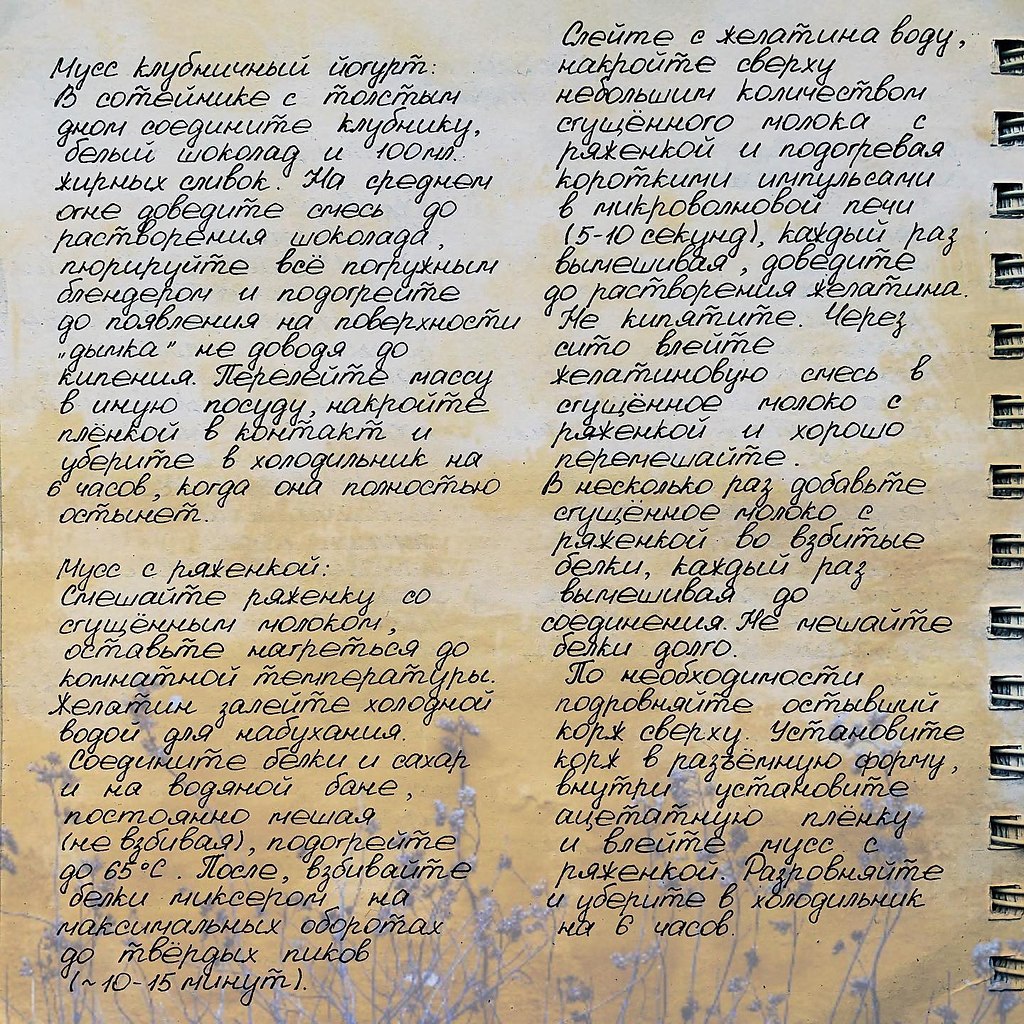 Мусс клубничный йогурт:
В сотейнике с толстым
дном соедините клубнику,
белый шоколад и 100 мл.
жирных сливок. На среднем
огне доведите смесь до
растворения шоколада,
пюрируйте всё погружным
блендером и подогрейте
до появления на поверхности
„дымка” не доводя до
кипения. Перелейте массу
в иную посуду, накройте
плёнкой в контакт и
уберите в холодильник на
6 часов, когда она полностью
остынет.
Мусс с ряженкой:
Смешайте ряженку со
сгущённым молоком,
оставьте нагреться до
комнатной температуры.
Желатин залейте холодной
водой для набухания.
Соедините белки и сахар
и на водяной бане,
постоянно мешая
(не взбивая), подогрейте
до 65°С. После, взбивайте
белки миксером на
максимальных оборотах
до твёрдых пиков
(~10-15 минут).
Слейте с желатина воду,
накройте сверху
небольшим количеством
сгущённого молока с
ряженкой и подогревая
короткими импульсами
в микроволновой печи
(5-10 секунд), каждый раз
вымешивая, доведите
до растворения желатина.
Не кипятите. Через
сито влейте
желатиновую смесь в
сгущённое молоко с
ряженкой и хорошо
перемешайте.
В несколько раз добавьте
сгущённое молоко с
ряженкой во взбитые
белки, каждый раз
вымешивая до
соединения. Не мешайте
белки долго.
По необходимости
подровняйте остывший
корж сверху. Установите
корж в разъёмную форму,
внутри установите
ацетатную плёнку
и влейте мусс с
ряженкой. Разровняйте
и уберите в холодильник
на 6 часов.